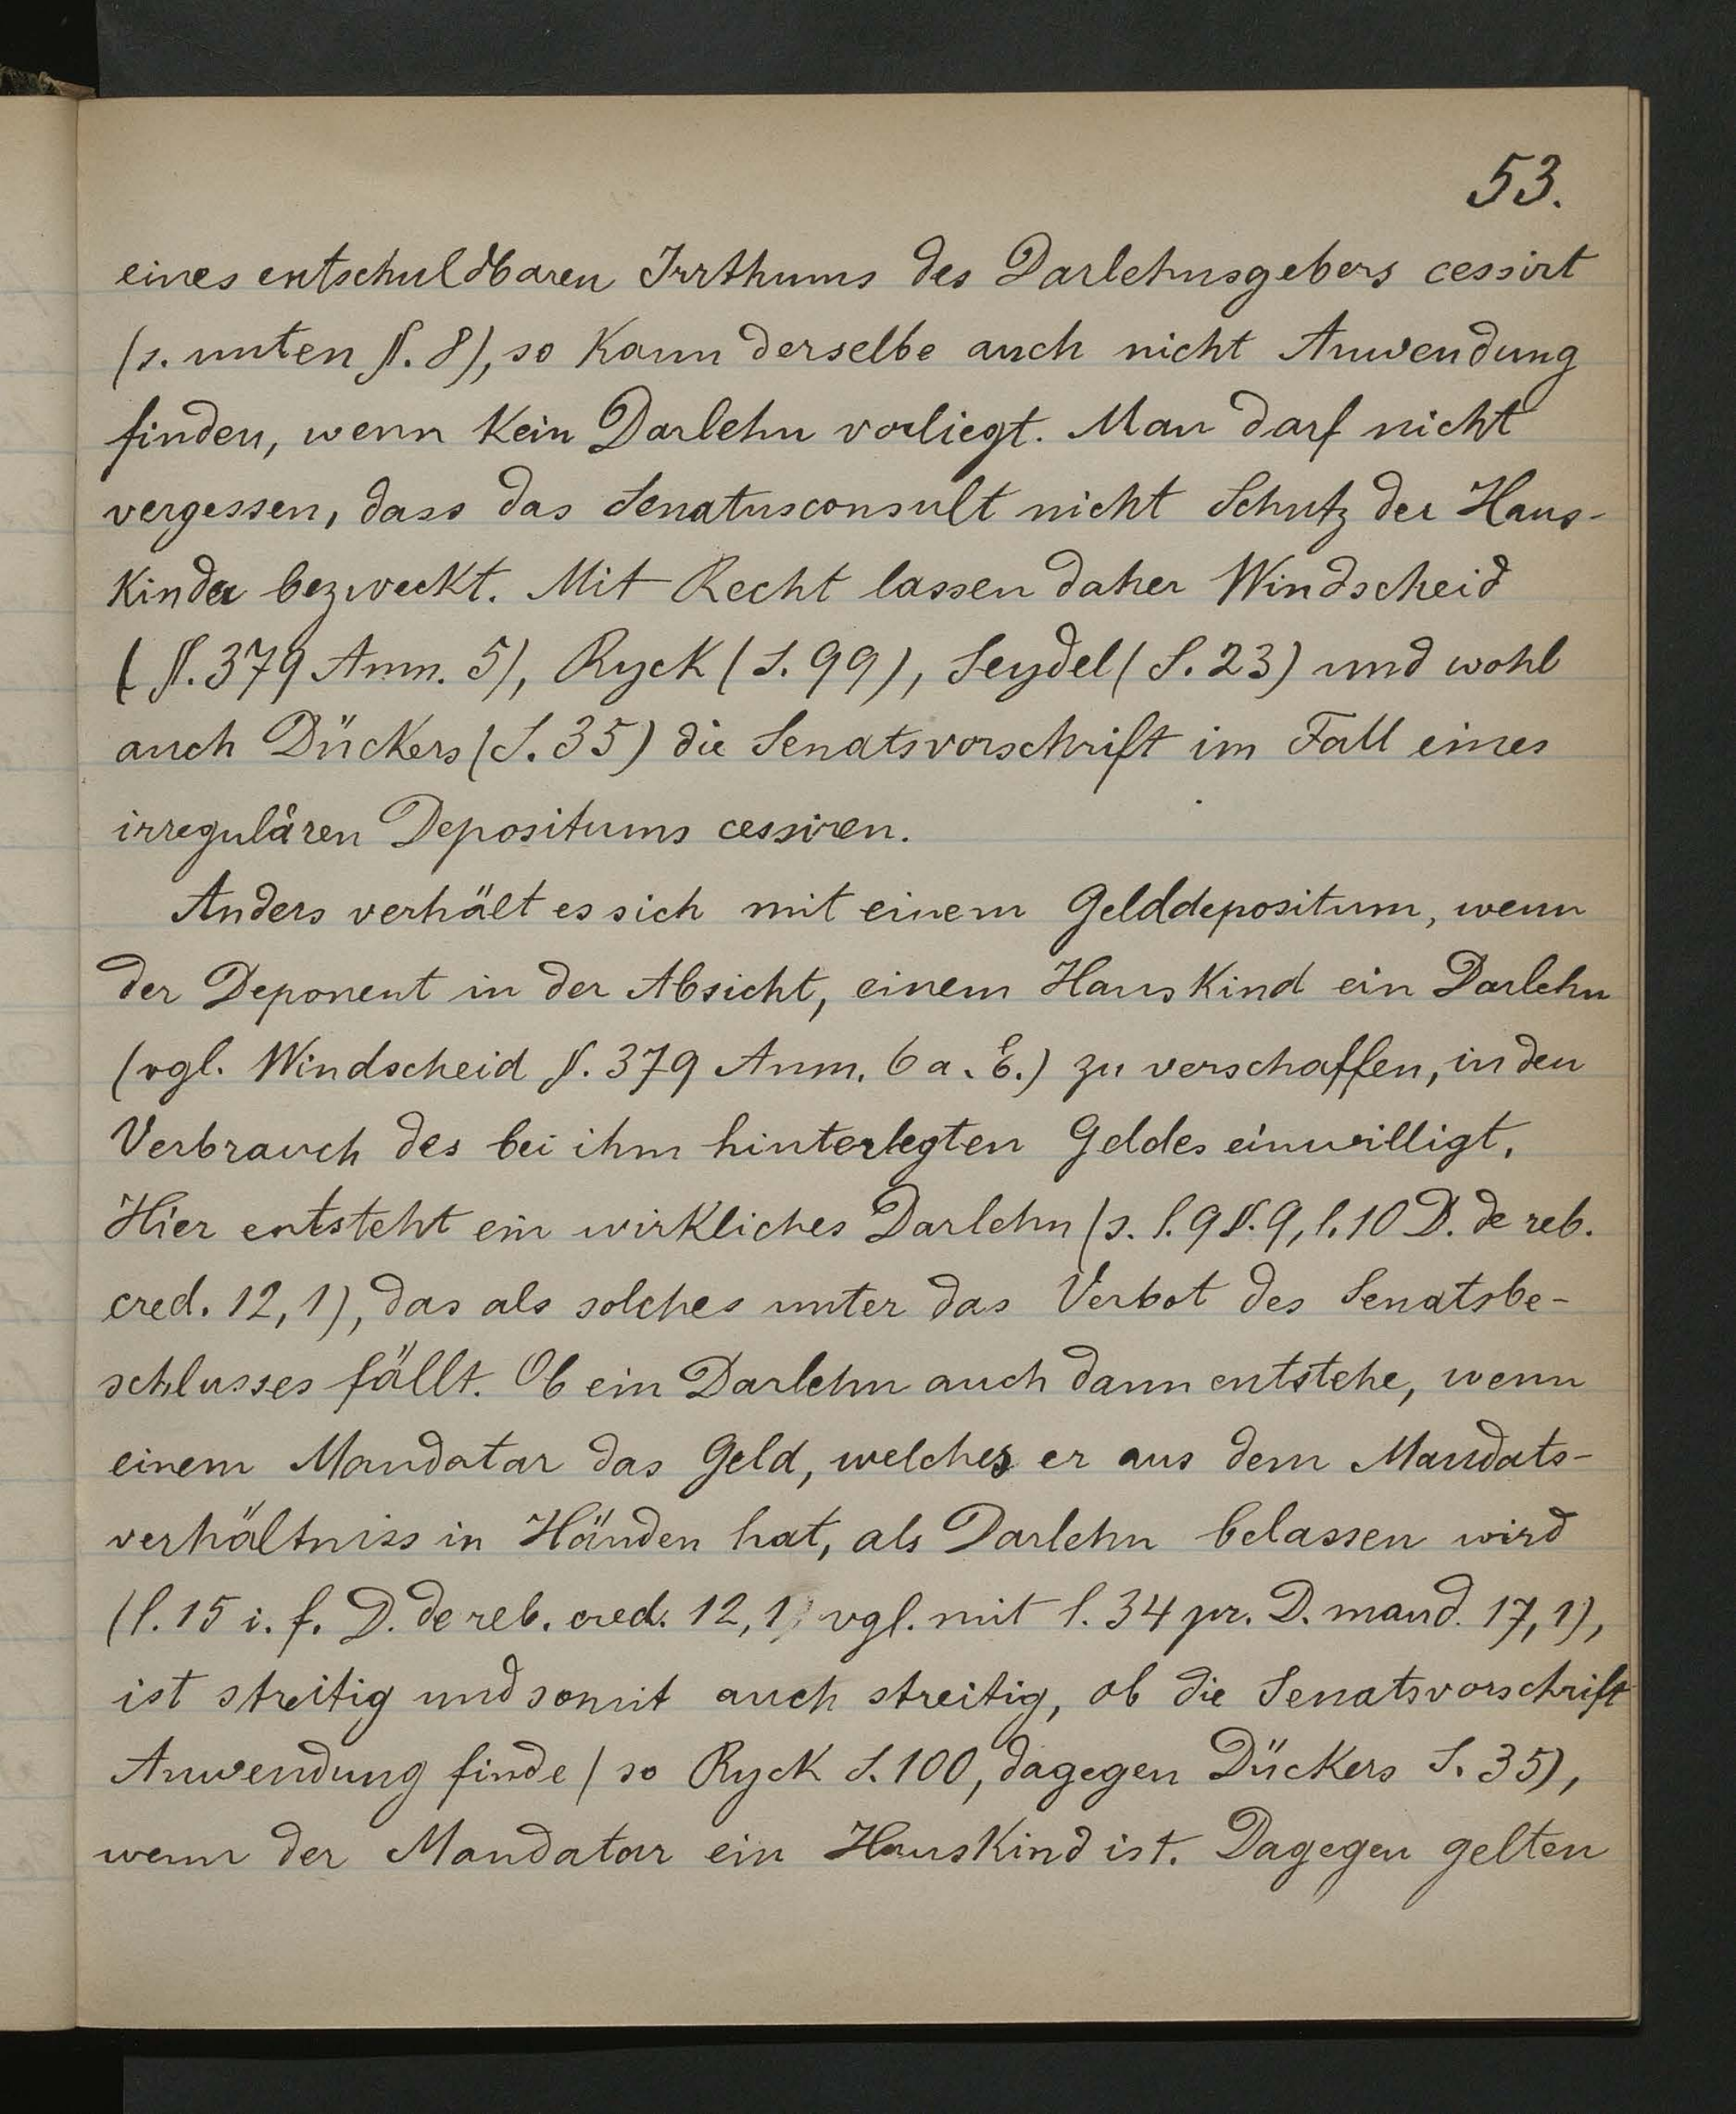 53.
eines entschuldbaren Irrthums des Darlehnsgebers cessirt
(s. unten §. 8), so kann derselbe auch nicht Anwendung
finden, wenn kein Darlehn vorliegt. Man darf nicht
vergessen, dass das Senatusconsult nicht Schutz der Haus-
kinder bezweckt. Mit Recht lassen daher Windscheid
(§. 379 Anm. 5), Ryck (S. 99), Seydel (S. 23) und wohl
auch Dückers (S. 35) die Senatsvorschrift im Fall eines
irregulären Depositums cessiren.
Anders verhält es sich mit einem Gelddepositum, wenn
der Deponent in der Absicht, einem Hauskind ein Darlehn
(vgl. Windscheid §. 379 Anm. 6 a. E.) zu verschaffen, in den
Verbrauch des bei ihm hinterlegten Geldes einwilligt.
Hier entsteht ein wirkliches Darlehn (s. l. 9 §. 9, l. 10 D. de reb.
cred. 12, 1), das als solches unter das Verbot des Senatsbe-
schlusses fällt. Ob ein Darlehn auch dann entstehe, wenn
einem Mandatar das Geld, welches er aus dem Mandats-
verhältniss in Händen hat, als Darlehn belassen wird
(l. 15 i. f. D. de reb. cred. 12, 1, vgl. mit l. 34 pr. D. mand. 17, 1),
ist streitig und somit auch streitig, ob die Senatsvorschrift
Anwendung finde (so Ryck S. 100, dagegen Dückers S. 35),
wenn der Mandatar ein Hauskind ist. Dagegen gelten